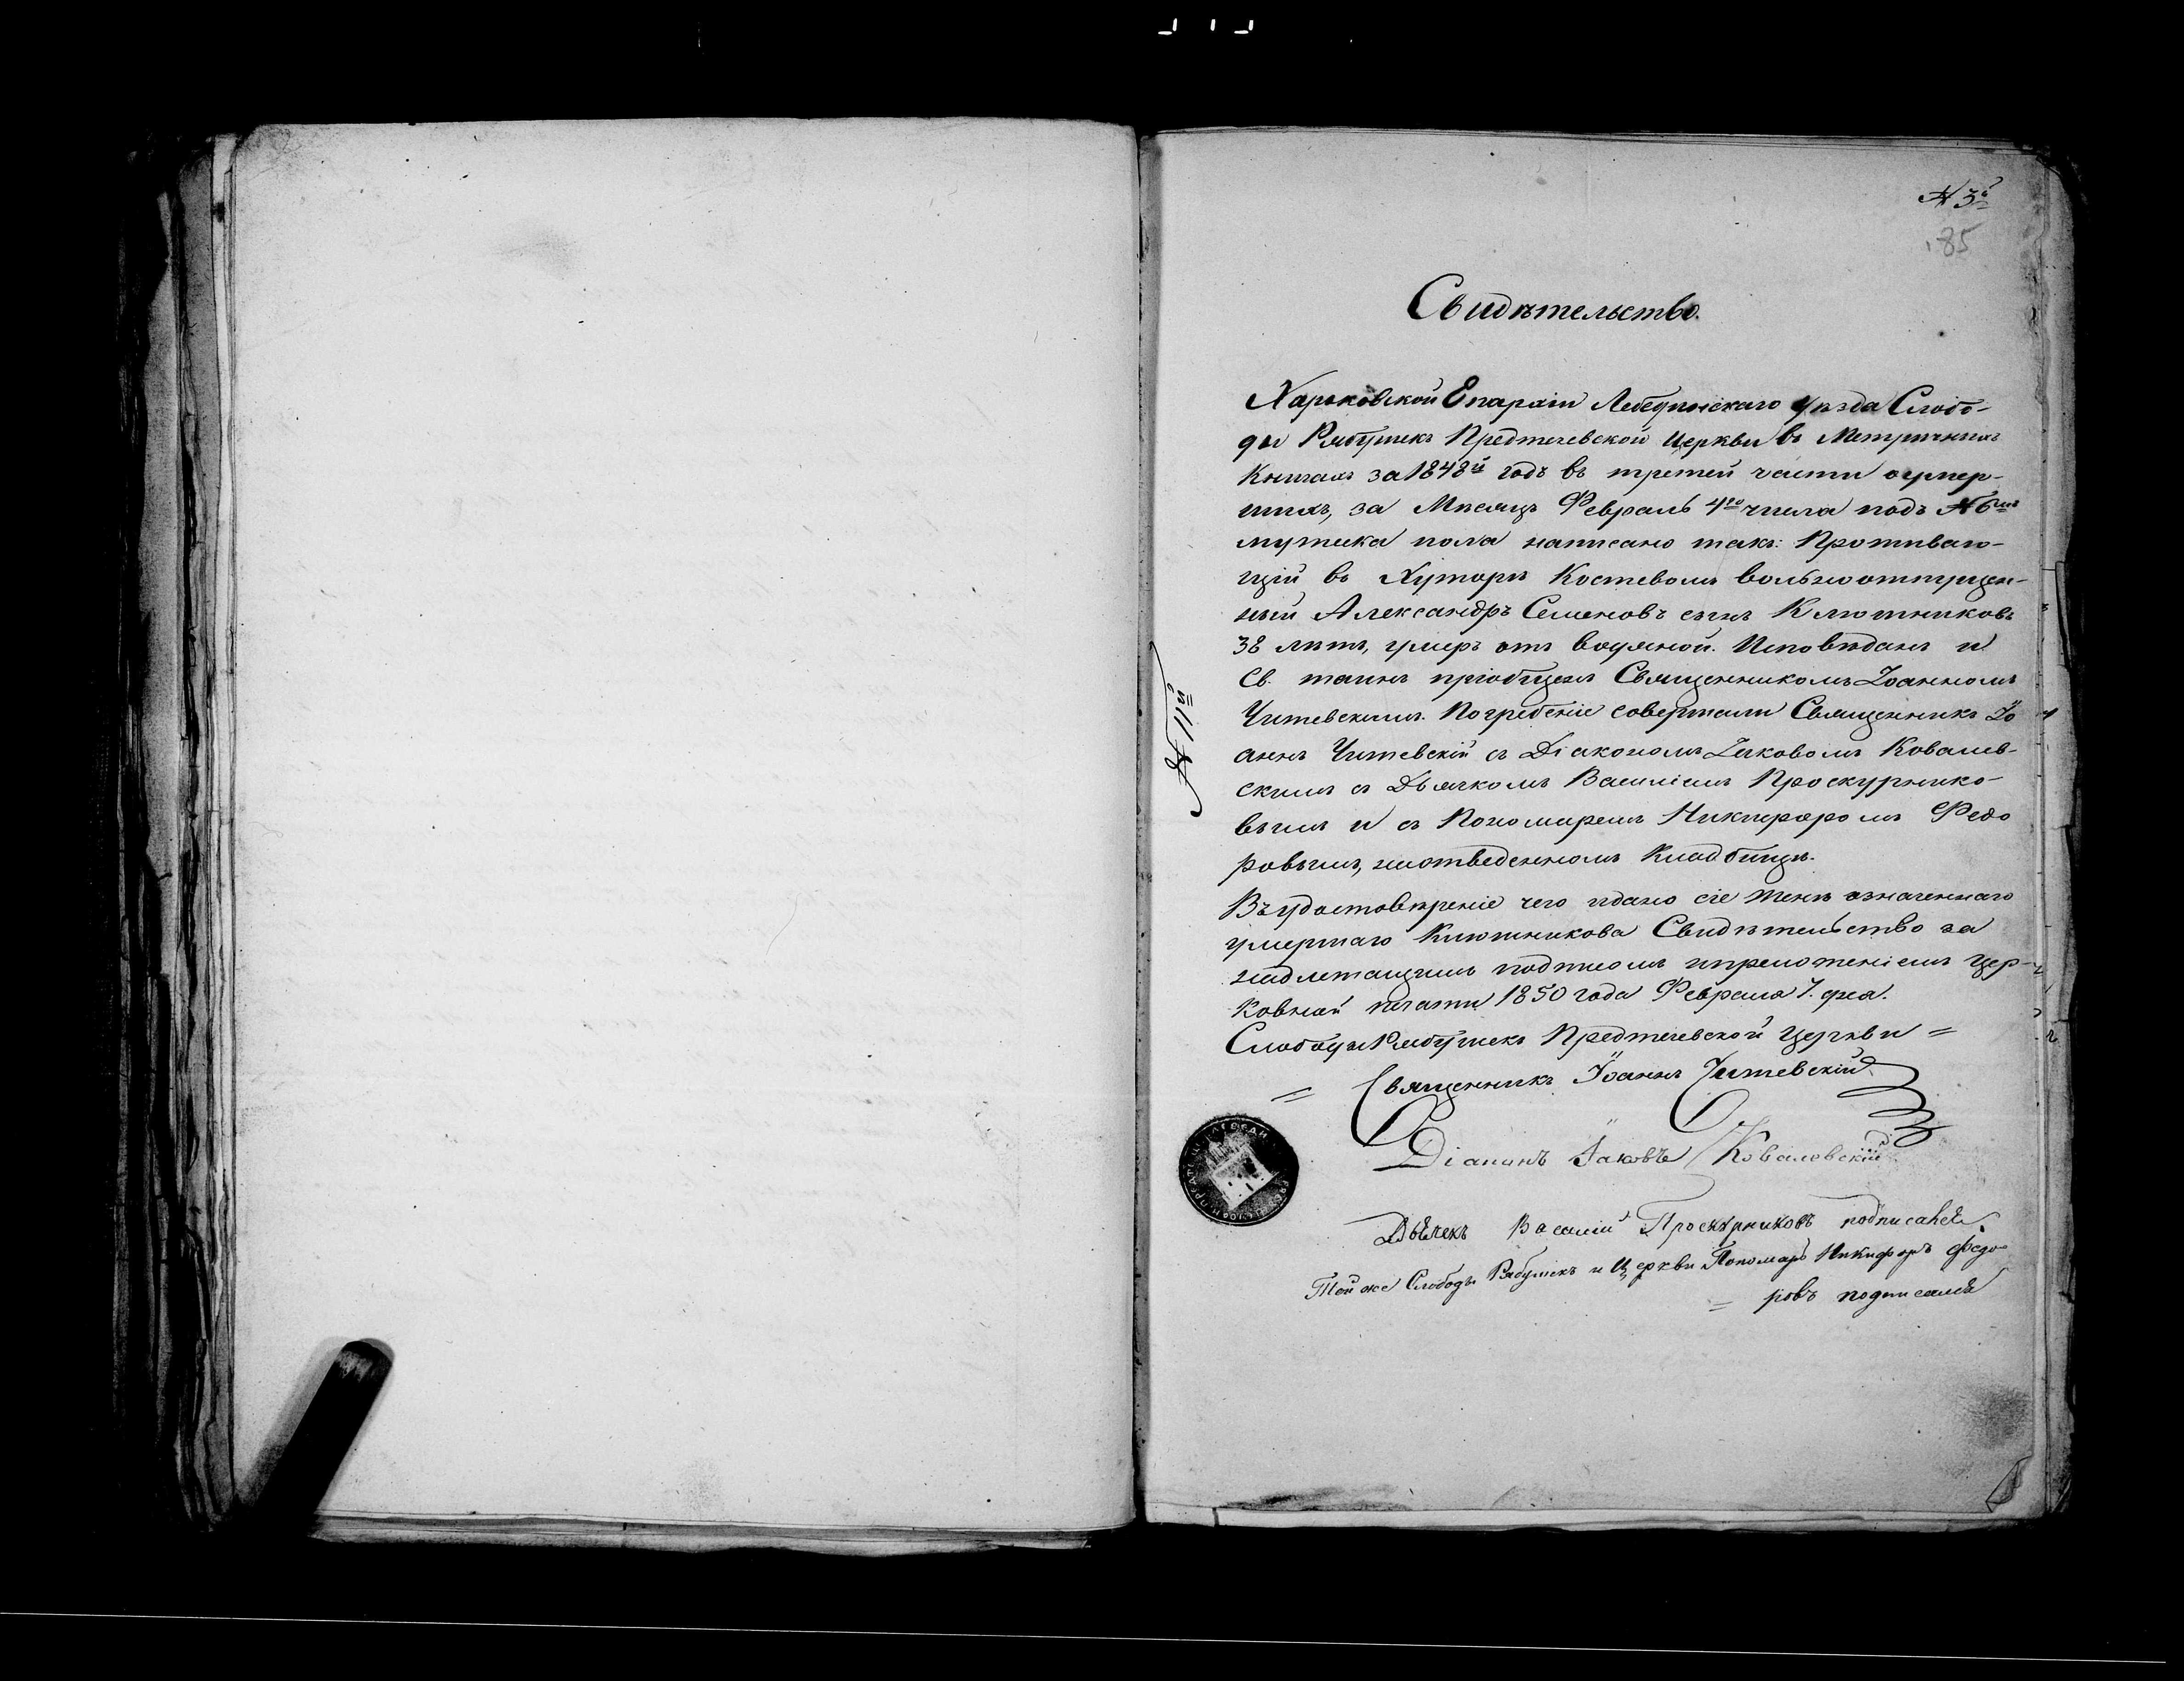 № 3й
185
Свидѣтельство.
Харьковской Епархіи Лебединскаго уѣзда Слобо-
ды Рябушекъ Предтечевской Церкви въ Метричныхъ
Книгахъ за 1848й годъ въ третей части оумер-
шихъ, за Мѣсяцъ Февраль 4го числа подъ №6мъ
мужеска пола написано такъ: Прожываю-
щій въ Хуторѣ Костевомъ вольноотпущен-
ный Александръ Семеновъ сынъ Ключниковъ
38 лѣтъ, умеръ отъ водяной. Исповѣданъ и
Св. таинъ пріобщенъ Священникомъ Іоанномъ
Чижевскимъ. Погребеніе совершали Священникъ Іо
аннъ Чижевскій съ Діакономъ Іаковомъ Ковалев-
скимъ съ Дьячкомъ Василіемъ Проскурнико-
вымъ и съ Пономаремъ Никифоромъ Федо
ровымъ, наотведенномъ Кладбищѣ.
Въ удостовѣреніе чего идано сіе женѣ означеннаго
умершаго Ключникова Свидѣтельство за
надлежащимъ подписомъ иприложеніемъ Цер-
ковной печати 1850 года Февраля 7. дня.
Слободы Рябушекъ Предтечевской Церкви =
= Священникъ Іоаннъ Чижевскій
Діаконъ Іаковъ Ковалевскій
Дьячекъ Василій Проскурниковъ подписался.
Той же Слободы Рябушекъ и Церкви Пономарь Никифоръ Федо-
= ровъ подписался
№ 11й